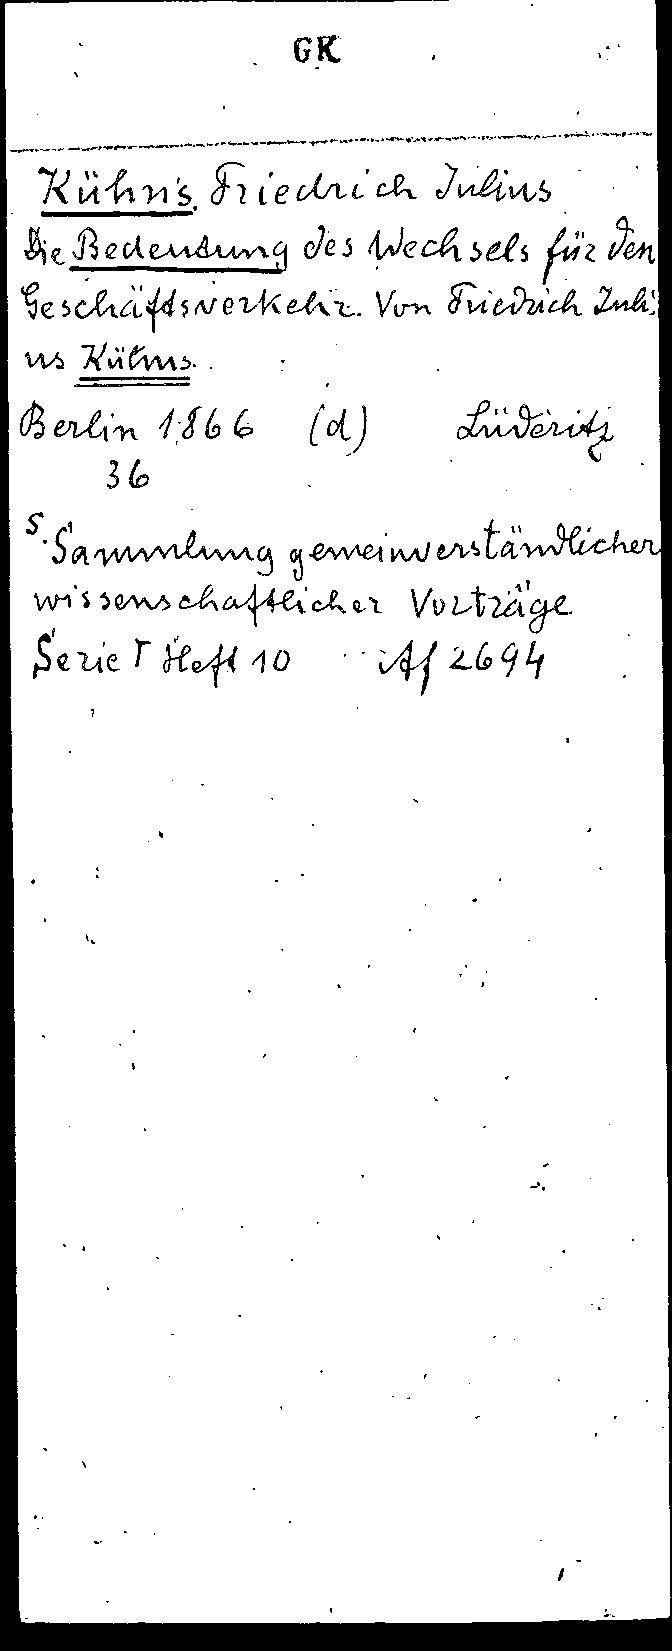 GK
Kühns, Friedrich Julius
Die Bedeutung des Wechsels für den
Geschäftsverkehr. Von Friedrich Juli-
us Kühns.
Berlin 1866 (d) Lüderitz
36
s. Sammlung gemeinverständlicher
wissenschaftlicher Vorträge
Serie I Heft 10 Af 2694